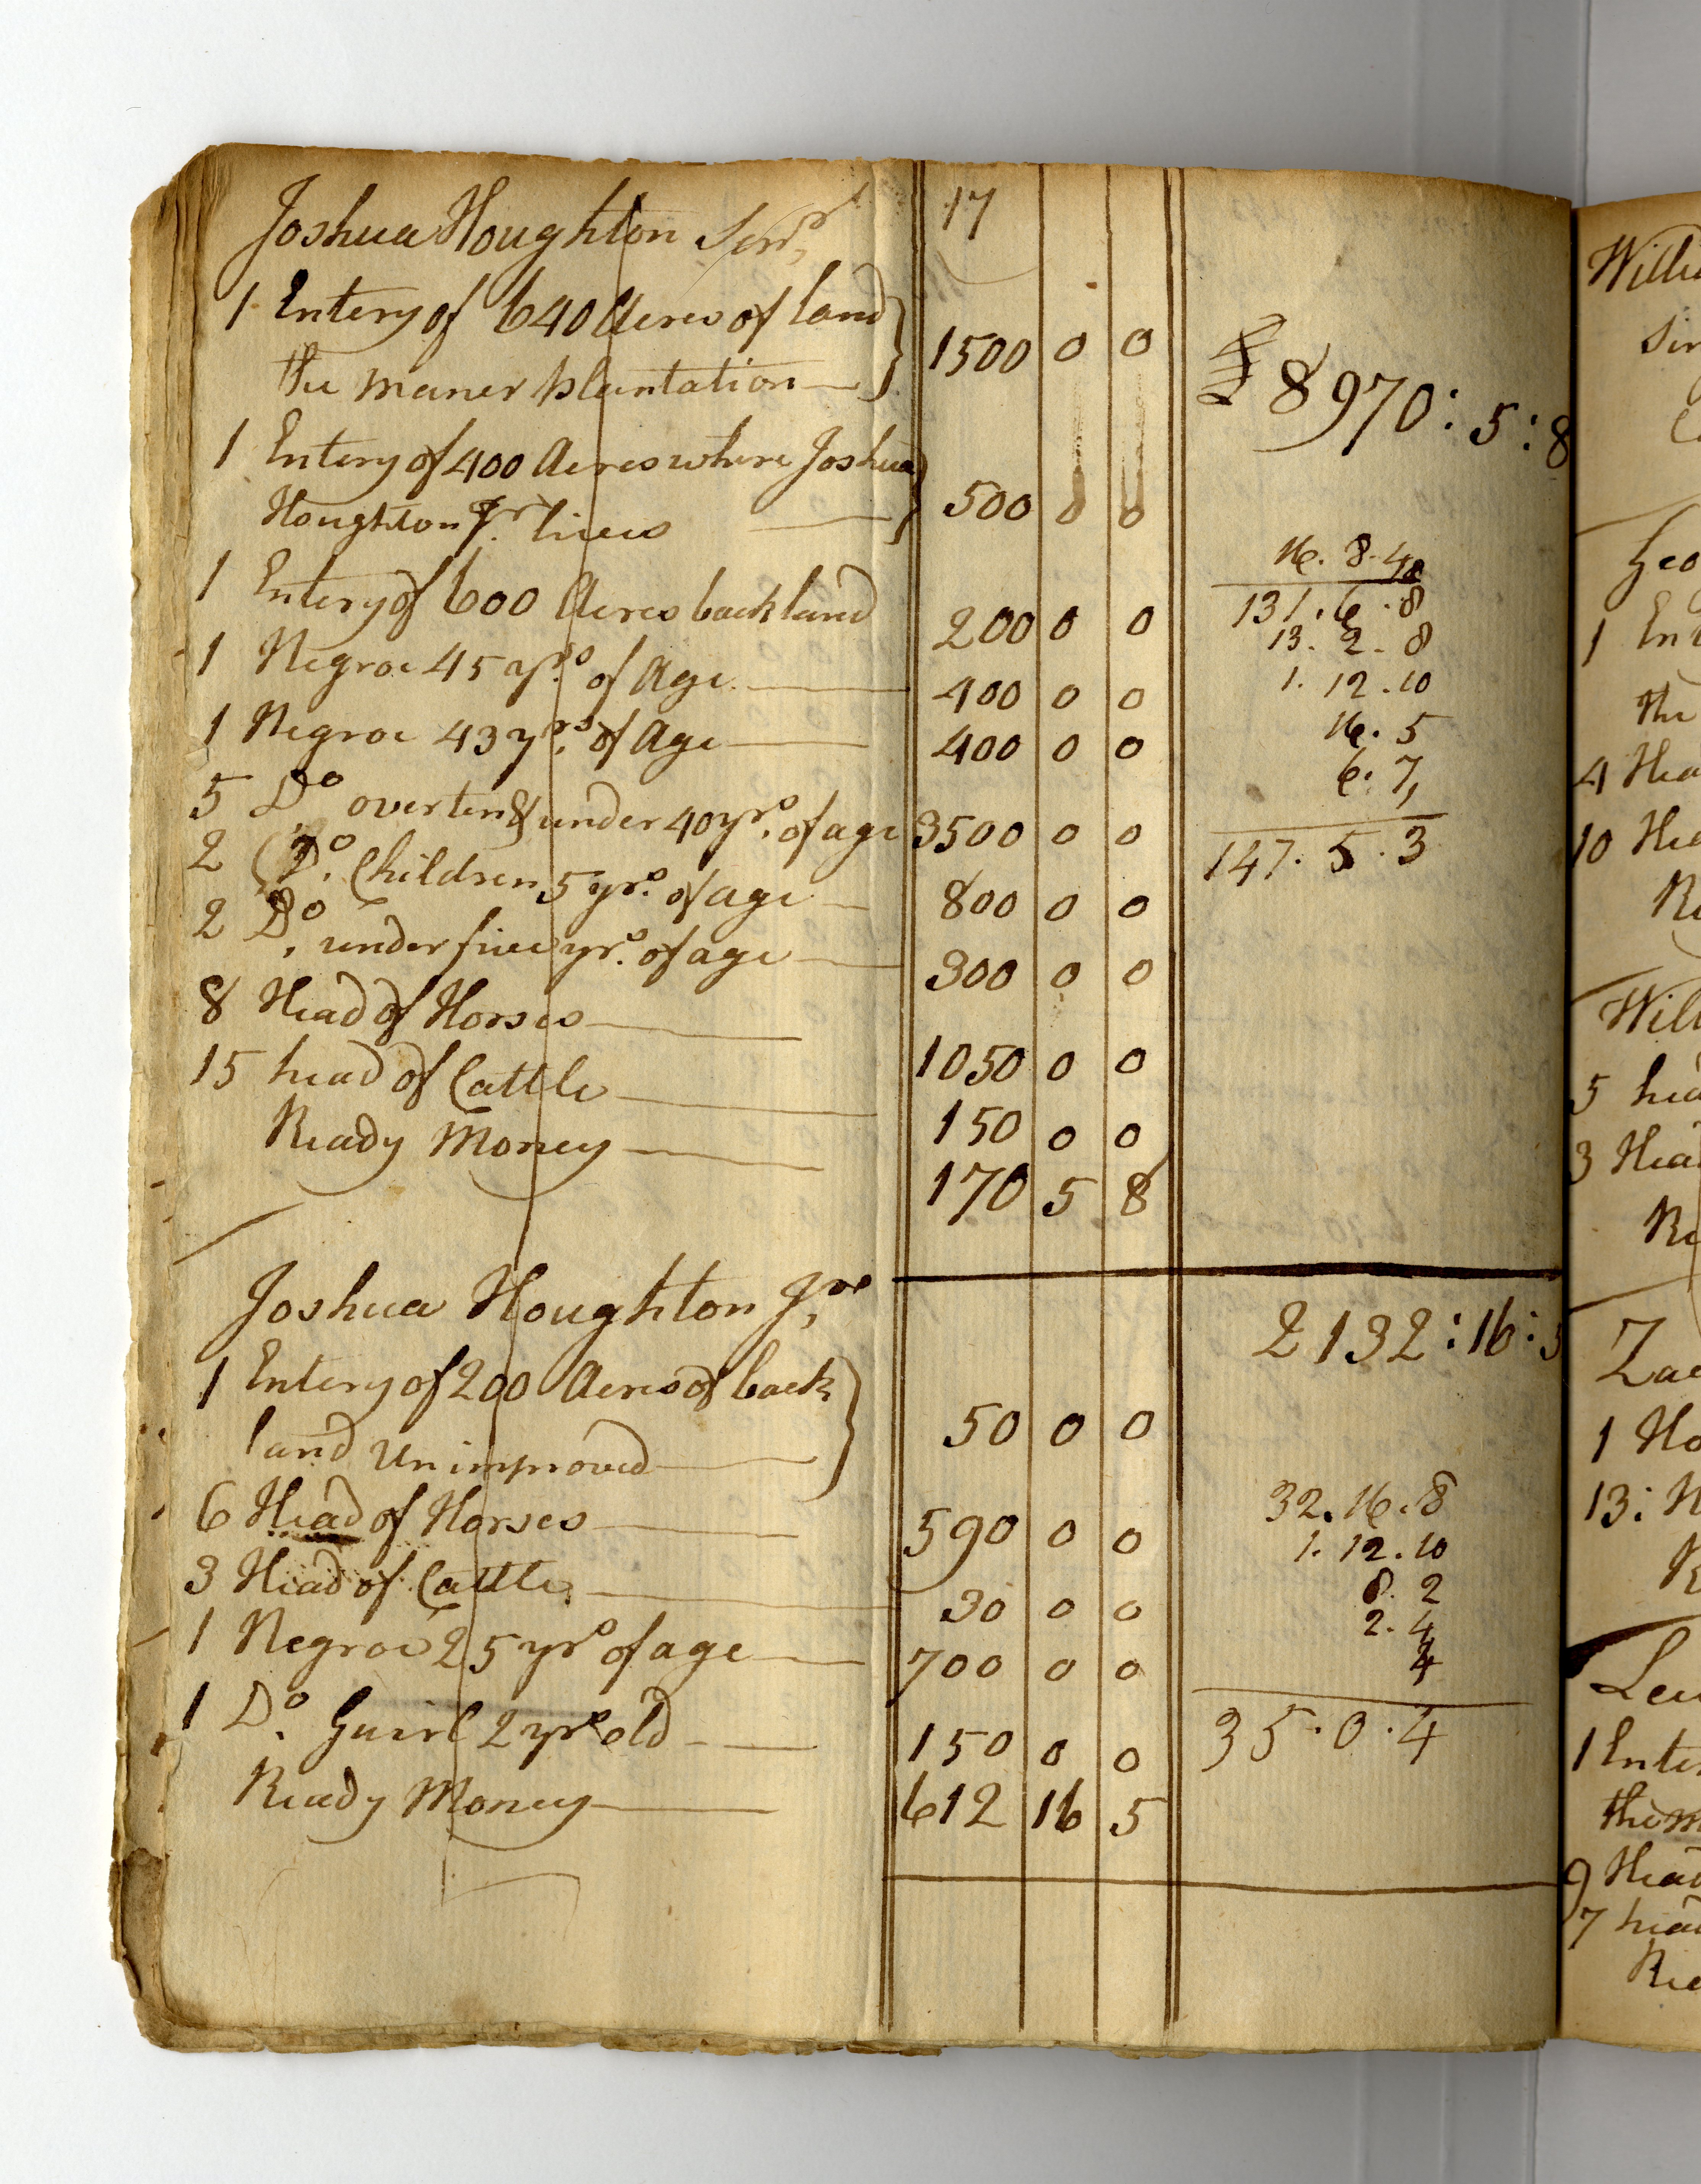 Joshua Houghton Senr. 17
1 Entery of 640 Acres of land
the maner plantation — 1500 0 0
£8970:5:8
1 Entery of 400 Acres where Joshua
Houghton Jr. lives — 500 0 0
16.8.4
1 Entery of 600 Acres back land 200 0 0
131.6.8
13.2.8
1 Negroe 45 yrs. of Age — 400 0 0
1.12.10
1 Negroe 43 yrs. of Age — 400 0 0
16.5
6.7
5 Do over ten & under 40 yrs. of age 3500 0 0
147.5.3
2 Do. Children 5 yrs. of age — 800 0 0
2 Do. under five yrs. of age — 300 0 0
8 Head of Horses — 1050 0 0
15 head of Cattle — 150 0 0
Ready Money — 170 5 8
Joshua Houghton Jr.
2132:16:5
1 Entery of 200 Acres of back
land unimproved — 50 0 0
6 Head of Horses — 590 0 0
32.16.8
1.12.10
3 Head of Cattle — 30 0 0
8.2
2.4
1 Negroe 25 yrs of age — 700 0 0
4
1 Do. Guirl 2 yrs old — 150 0 0
35.0.4
Ready Money — 612 16 5
Geo
1
the
4
10
5
3
1
13:
1
9
7